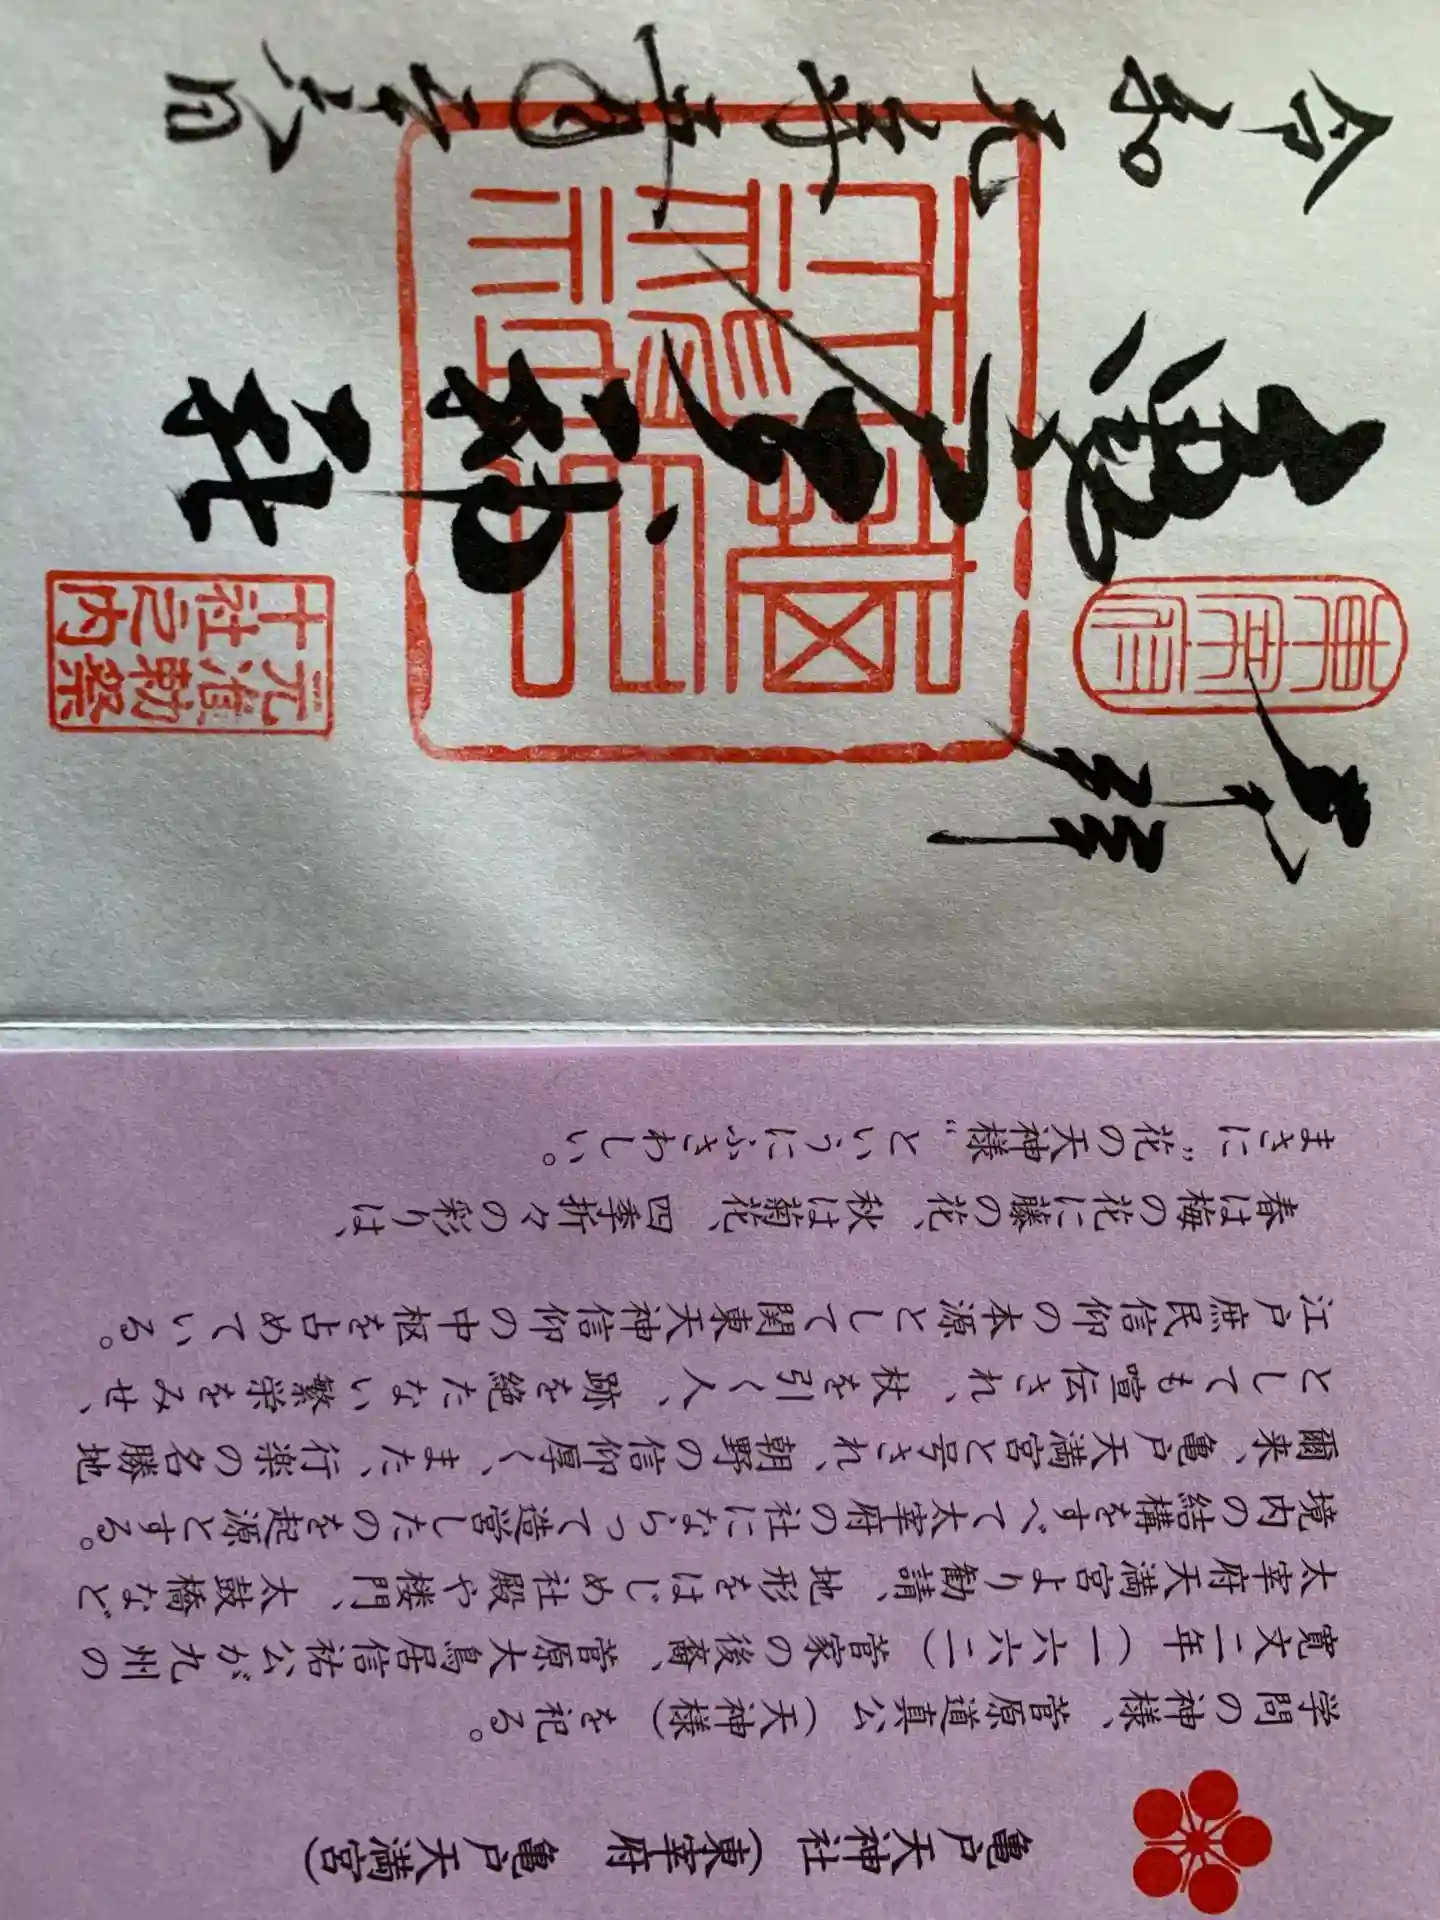 奉拝
東宰府
亀戸天神社
元准勅祭
十社之内
令和元年
亀戸天神社(東宰府 亀戸天満宮)
学問の神様、菅原道真公(天神様)を祀る。
寛文二年(一六六二)菅家の後裔、菅原大鳥居信祐公が九州の
太宰府天満宮より勧請、地形をはじめ社殿や楼門、太鼓橋など
境内の結構をすべて太宰府の社にならって造営したのを起源とする。
爾来、亀戸天満宮と号され、朝野の信仰厚く、また、行楽の名勝地
としても喧伝され、杖を引く人、跡を絶たない繁栄をみせ、
江戸庶民信仰の本源として関東天神信仰の中枢を占めている。
春は梅の花に藤の花、秋は菊花、四季折々の彩りは、
まさに"花の天神様"というにふさわしい。